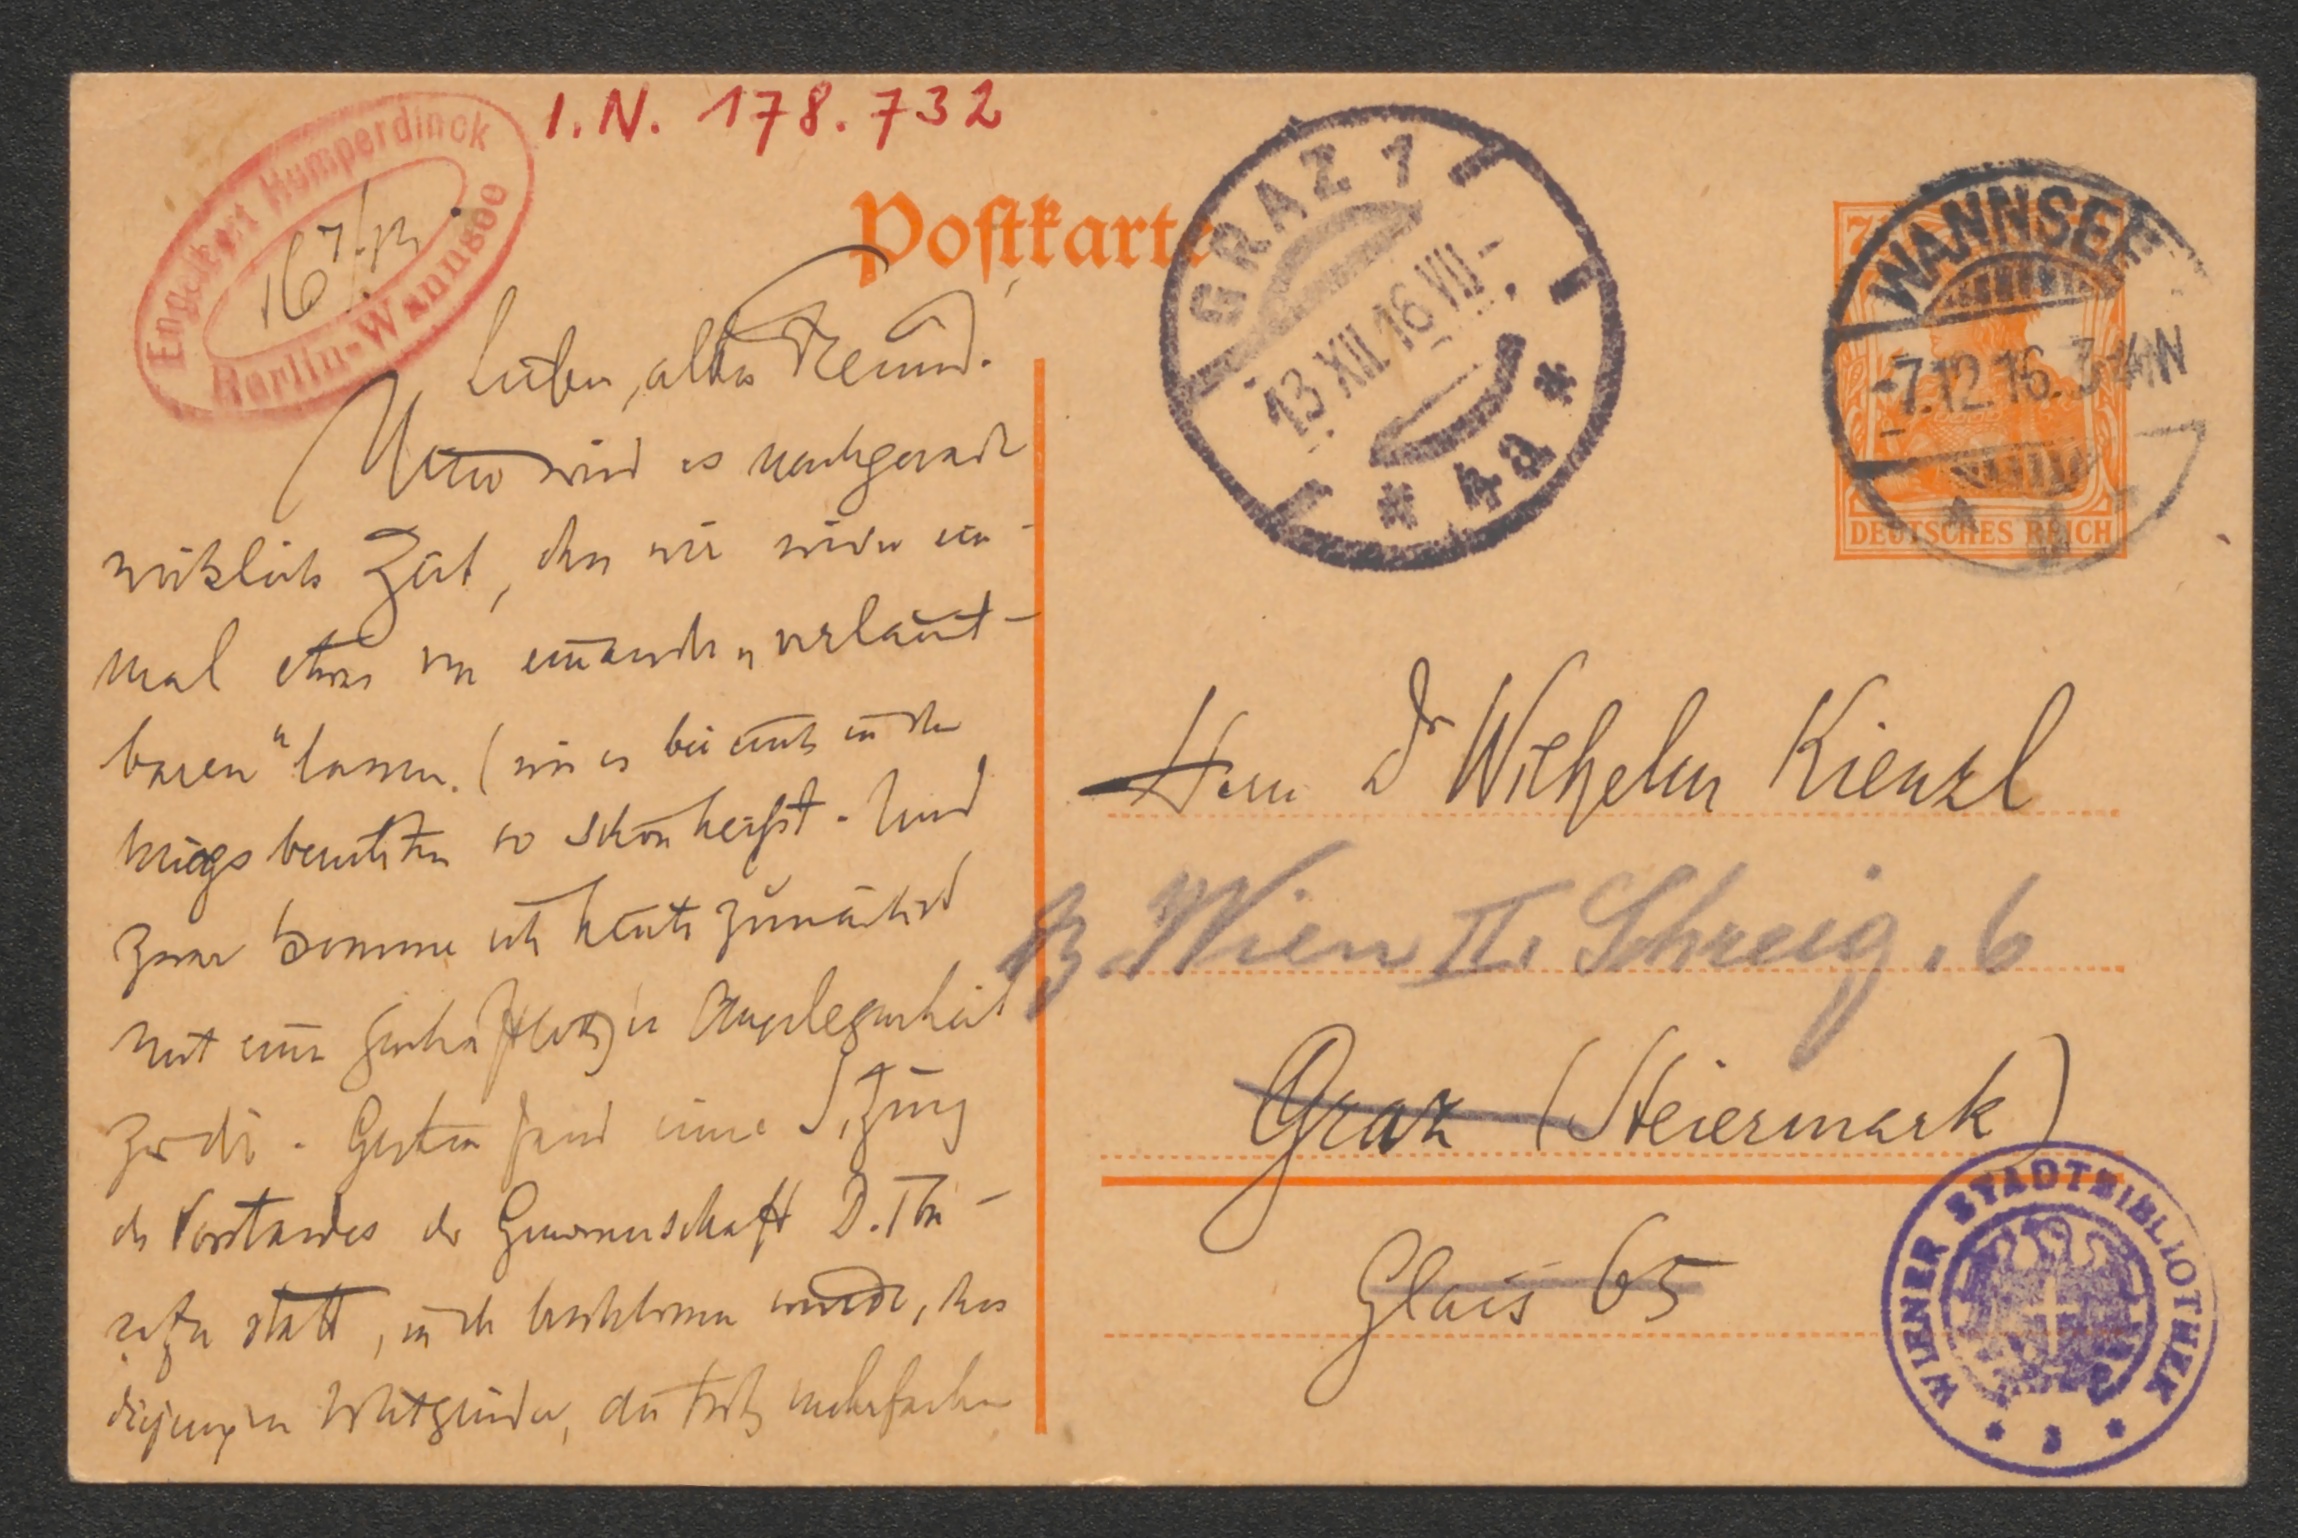 I.N. 178.732
Engelbert Humperdinck
16 7/12
Berlin-Wannsee
Postkarte
GRAZ 1
13 XII. 16 VII
* 4a *
WANNSEE
-7.12.16. 3-4N
DEUTSCHES REICH
Lieber, alter Freund.
Nun wird es nachgerade
wirklich Zeit, dass wir wieder ein-
mal etwas von einander „verlaut-
baren" lassen. (wie es bei uns in den
so schön heißt. Und
zwar komme ich heute zunächst
mit einer geschäftlichen Angelegenheit
zu dir. Gestern fand eine Sitzung
des Vorstandes der Genossenschaft D. Ton-
setzer statt, in der beschlossen wurde, dass
diejenigen Mitglieder, die trotz mehrfacher
Herrn Dr Wilhelm Kienzl
Wien II. Schreig. 6
Graz (Steiermark)
Glacis 65
WIENER STADTBIBLIOTHEK